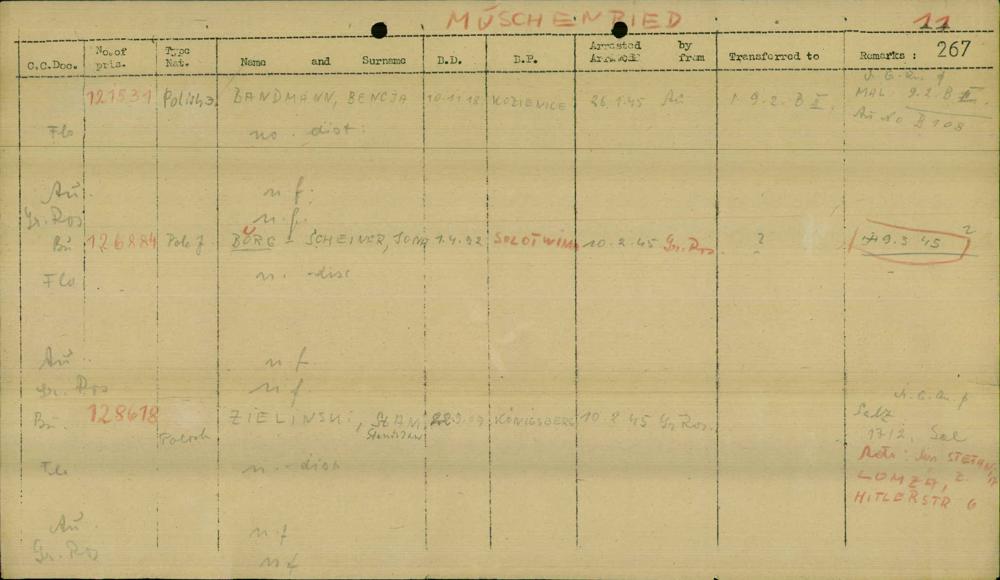 MÜSCHENRIED
11
No. of Type Arrested by 267
C.C.Doc. pris. Nat. Name and Surname D.D. D.P. Arrived from Transferred to Remarks :
121531 Polish J. BANDMANN, BENCJA 10.11.18 KOZIENICE 26.1.45 Au 9.2. B II. MAL. 9.2. B II
Flo no. dist: Au No B 108
Au n f.
Gr. Ros n. f.
Bu 126884 Pole J. BORG - SCHEINER, JONA 1.4.92 SOLOTWINA 10.2.45 Gr. Ros. ? + 9.3 45 ?
Flo n. - disc
Au n f
Gr. Ros n f
Bu. 128618 Polish ZIELINSKI, STAN Stanislaw KÖNIGSBERG 10.2.45 Gr Ros. Selz
Flo n. - dist
LOMZA,
HITLERSTR 6
Au n f
Gr. Ros n f